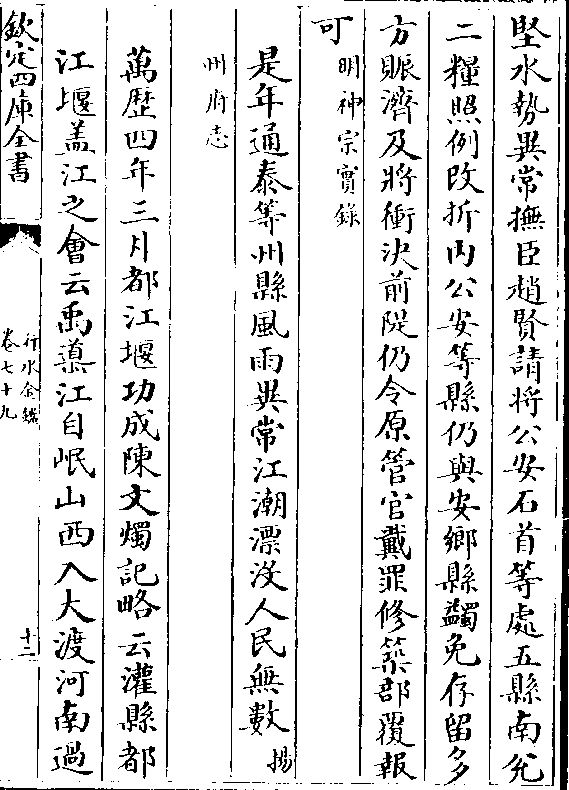 堅水勢異常撫臣趙賢請將公安石首等處五縣南兊
二糧照例改折内公安等縣仍與安鄉縣蠲免存留多
方賑濟及將衝決前隄仍令原管官戴罪修築部覆報
可明神宗實錄
是年通泰等州縣風雨異常江潮漂没人民無數揚
州府志
萬歷四年三月都江堰功成陳文燭記略云灌縣都
江堰盖江之會云禹導江自岷山西入大渡河南過
欽定四庫全書
行水金鑑
卷七十九
十二